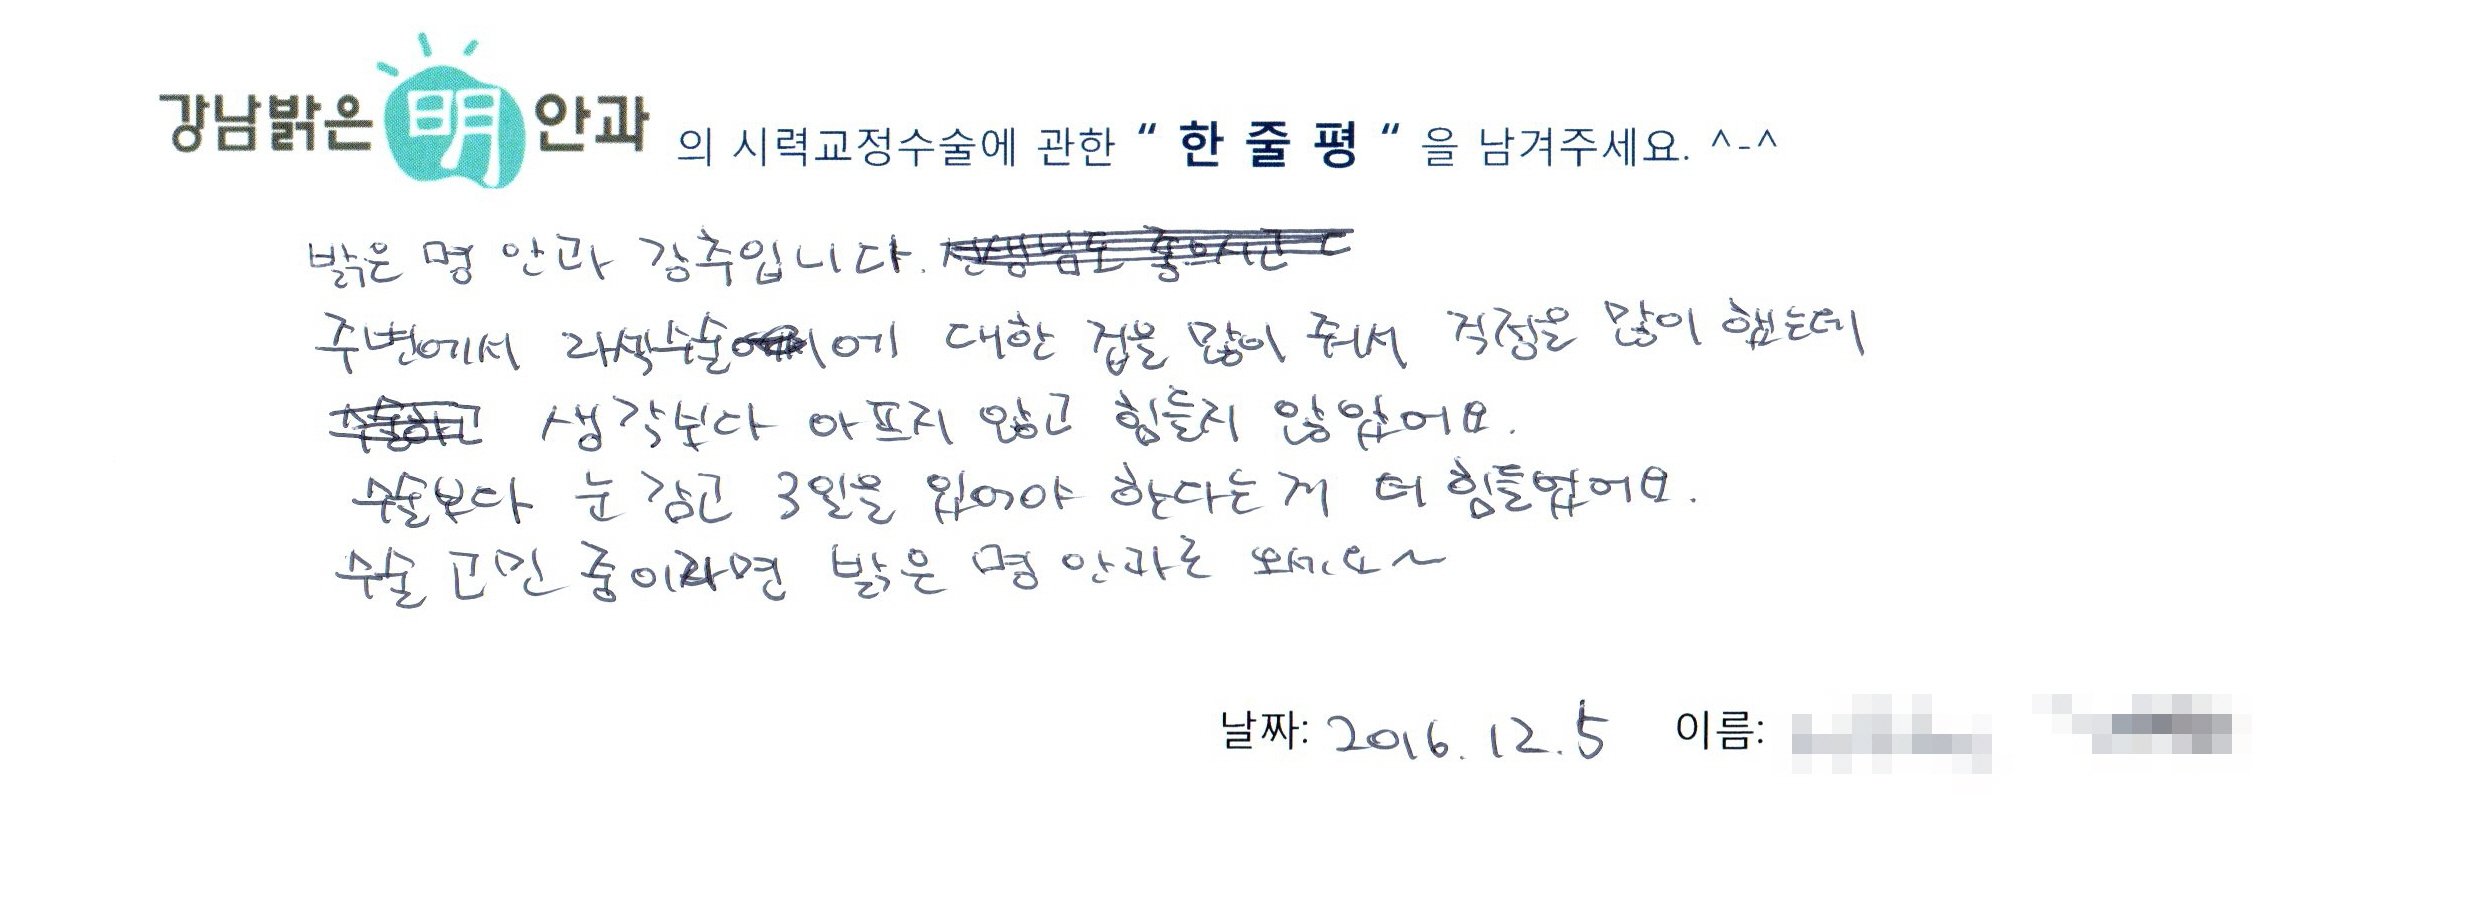 강남밝은明안과 의 시력교정수술에 관한 “ 한 줄 평 “ 을 남겨주세요. ^-^
밝은 명 안과 강추입니다.
주변에서 라섹수술에 대한 겁을 많이 줘서 걱정을 많이 했는데
생각보다 아프지 않고 힘들지 않았어요.
수술보다 눈 감고 3일을 있어야 한다는게 더 힘들었어요.
수술 고민 중이라면 밝은 명 안과로 오세요~
날짜: 2016. 12. 5 이름: